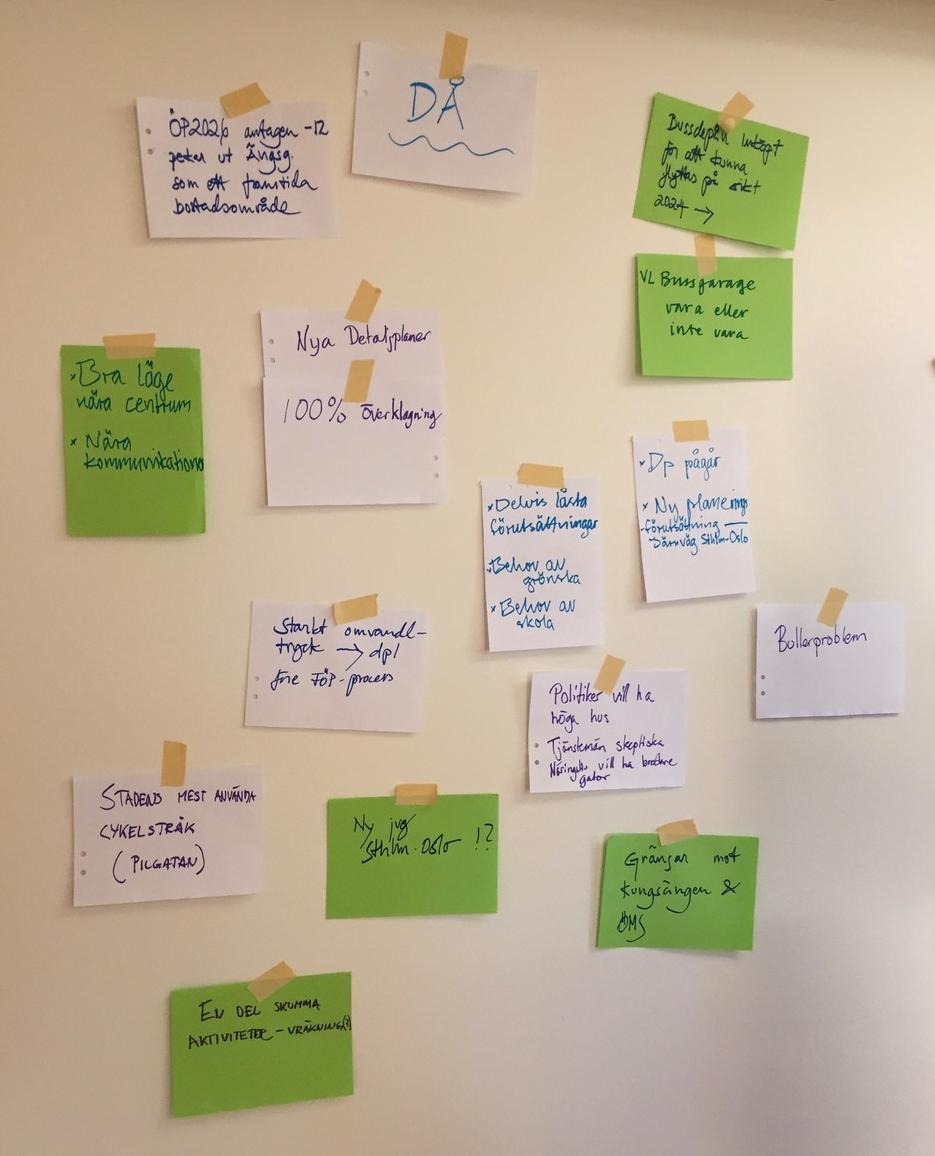 DÅ
ÖP2026 antagen -12
pekar ut Ängsg.
som ett framtida
bostadsområde
Bussdepån inköpt
för att kunna
flyttas på sikt
2024 →
VL Bussgarage
vara eller
inte vara
Nya Detaljplaner
100% överklagning
× Bra läge
nära centrum
× Nära
kommunikationer
× Delvis låsta
förutsättningar
× Behov av
grönska
× Behov av
skola
× Dp pågår
× Ny planerings
-förutsättning —
Järnväg Sthlm-Oslo
Starkt omvandl-
tryck → dpl
före FÖP-process
Bullerproblem
Politiker vill ha
höga hus
Tjänstemän skeptiska
Näringsliv vill ha bredare
gator
STADENS MEST ANVÄNDA
CYKELSTRÅK
(PILGATAN)
Ny jvg
Sthlm-Oslo !?
Gränsar mot
Kungsängen &
ÖMS
EN DEL SKUMMA
AKTIVITETER - VRÄKNING(?)